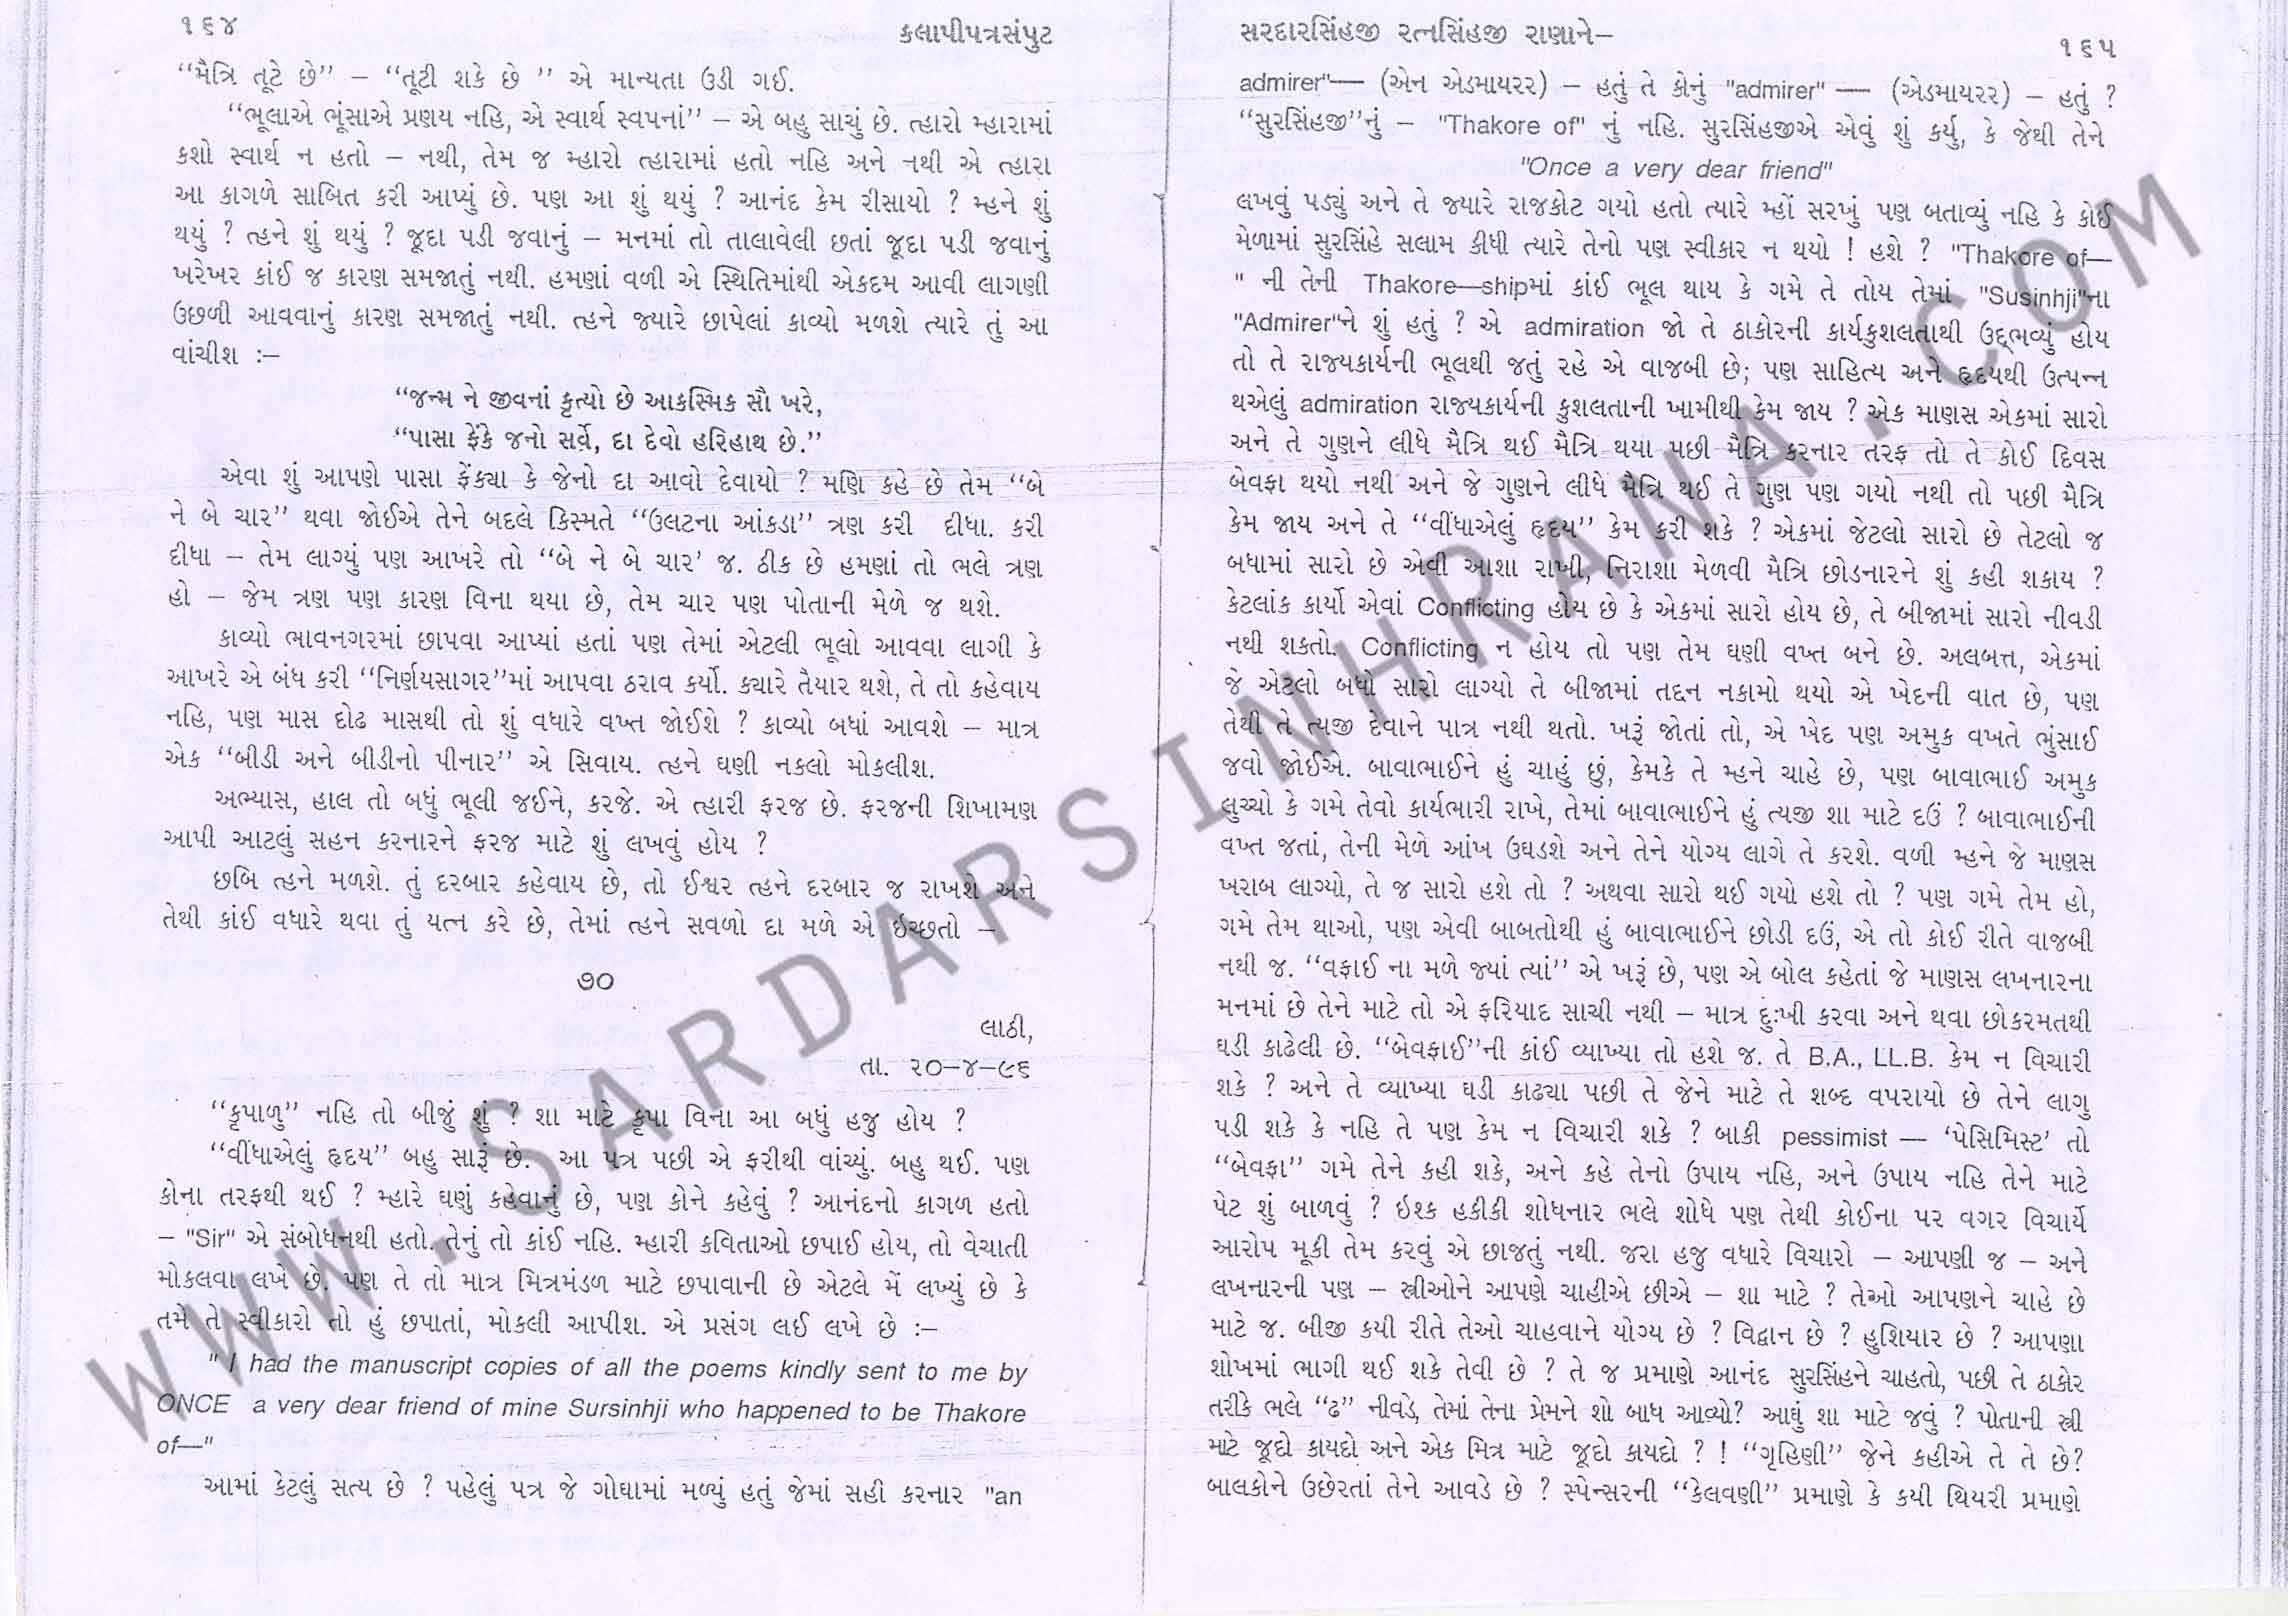 ૧૬૪
કલાપીપત્રસંપુટ
“મૈત્રિ તૂટે છે” – “તૂટી શકે છે ” એ માન્યતા ઉડી ગઈ.
“ભૂલાએ ભૂંસાએ પ્રણય નહિ, એ સ્વાર્થ સ્વપનાં” – એ બહુ સાચું છે. ત્હારો મ્હારામાં
કશો સ્વાર્થ ન હતો – નથી, તેમ જ મ્હારો ત્હારામાં હતો નહિ અને નથી એ ત્હારા
આ કાગળે સાબિત કરી આપ્યું છે. પણ આ શું થયું ? આનંદ કેમ રીસાયો ? મ્હને શું
થયું ? ત્હને શું થયું ? જૂદા પડી જવાનું – મનમાં તો તાલાવેલી છતાં જૂદા પડી જવાનું
ખરેખર કાંઈ જ કારણ સમજાતું નથી. હમણાં વળી એ સ્થિતિમાંથી એકદમ આવી લાગણી
ઉછળી આવવાનું કારણ સમજાતું નથી. ત્હને જ્યારે છાપેલાં કાવ્યો મળશે ત્યારે તું આ
વાંચીશ :–
“જન્મ ને જીવનાં કૃત્યો છે આકસ્મિક સૌ ખરે,
“પાસા ફેંકે જનો સર્વે, દા દેવો હરિહાથ છે.”
એવા શું આપણે પાસા ફેંક્યા કે જેનો દા આવો દેવાયો ? મણિ કહે છે તેમ “બે
ને બે ચાર” થવા જોઈએ તેને બદલે કિસ્મતે “ઉલટના આંકડા” ત્રણ કરી દીધા. કરી
દીધા – તેમ લાગ્યું પણ આખરે તો “બે ને બે ચાર’ જ. ઠીક છે હમણાં તો ભલે ત્રણ
હો – જેમ ત્રણ પણ કારણ વિના થયા છે, તેમ ચાર પણ પોતાની મેળે જ થશે.
કાવ્યો ભાવનગરમાં છાપવા આપ્યાં હતાં પણ તેમાં એટલી ભૂલો આવવા લાગી કે
આખરે એ બંધ કરી “નિર્ણયસાગર”માં આપવા ઠરાવ કર્યો. ક્યારે તૈયાર થશે, તે તો કહેવાય
નહિ, પણ માસ દોઢ માસથી તો શું વધારે વખ્ત જોઈશે ? કાવ્યો બધાં આવશે – માત્ર
એક “બીડી અને બીડીનો પીનાર” એ સિવાય. ત્હને ઘણી નકલો મોકલીશ.
અભ્યાસ, હાલ તો બધું ભૂલી જઈને, કરજે. એ ત્હારી ફરજ છે. ફરજની શિખામણ
આપી આટલું સહન કરનારને ફરજ માટે શું લખવું હોય ?
છબિ ત્હને મળશે. તું દરબાર કહેવાય છે, તો ઈશ્વર ત્હને દરબાર જ રાખશે અને
તેથી કાંઈ વધારે થવા તું યત્ન કરે છે, તેમાં ત્હને સવળો દા મળે એ ઇચ્છતો –
૭૦
લાઠી,
તા. ૨૦–૪–૯૬
“કૃપાળુ” નહિ તો બીજું શું ? શા માટે કૃપા વિના આ બધું હજુ હોય ?
“વીંધાએલું હૃદય” બહુ સારૂં છે. આ પત્ર પછી એ ફરીથી વાંચ્યું. બહુ થઈ. પણ
કોના તરફથી થઈ ? મ્હારે ઘણું કહેવાનું છે, પણ કોને કહેવું ? આનંદનો કાગળ હતો
– "Sir" એ સંબોધનથી હતો. તેનું તો કાંઈ નહિ. મ્હારી કવિતાઓ છપાઈ હોય, તો વેચાતી
મોકલવા લખે છે. પણ તે તો માત્ર મિત્રમંડળ માટે છપાવાની છે એટલે મેં લખ્યું છે કે
તમે તે સ્વીકારો તો હું છપાતાં, મોકલી આપીશ. એ પ્રસંગ લઈ લખે છે :–
" I had the manuscript copies of all the poems kindly sent to me by
ONCE a very dear friend of mine Sursinhji who happened to be Thakore
of—"
આમાં કેટલું સત્ય છે ? પહેલું પત્ર જે ગોઘામાં મળ્યું હતું જેમાં સહી કરનાર "an
સરદારસિંહજી રત્નસિંહજી રાણાને–
૧૬૫
admirer"— (એન એડમાયરર) – હતું તે કોનું "admirer" — (એડમાયરર) – હતું ?
“સુરસિંહજી”નું – "Thakore of" નું નહિ. સુરસિંહજીએ એવું શું કર્યુ, કે જેથી તેને
"Once a very dear friend"
લખવું પડ્યું અને તે જ્યારે રાજકોટ ગયો હતો ત્યારે મ્હોં સરખું પણ બતાવ્યું નહિ કે કોઈ
મેળામાં સુરસિંહે સલામ કીધી ત્યારે તેનો પણ સ્વીકાર ન થયો ! હશે ? "Thakore of—
" ની તેની Thakore—shipમાં કાંઈ ભૂલ થાય કે ગમે તે તોય તેમાં "Susinhji"ના
"Admirer"ને શું હતું ? એ admiration જો તે ઠાકોરની કાર્યકુશલતાથી ઉદ્દ્ભવ્યું હોય
તો તે રાજ્યકાર્યની ભૂલથી જતું રહે એ વાજબી છે; પણ સાહિત્ય અને હૃદયથી ઉત્પન્ન
થએલું admiration રાજ્યકાર્યની કુશલતાની ખામીથી કેમ જાય ? એક માણસ એકમાં સારો
અને તે ગુણને લીધે મૈત્રિ થઈ મૈત્રિ થયા પછી મૈત્રિ કરનાર તરફ તો તે કોઈ દિવસ
બેવફા થયો નથી અને જે ગુણને લીધે મૈત્રિ થઈ તે ગુણ પણ ગયો નથી તો પછી મૈત્રિ
કેમ જાય અને તે “વીંધાએલું હૃદય” કેમ કરી શકે ? એકમાં જેટલો સારો છે તેટલો જ
બધામાં સારો છે એવી આશા રાખી, નિરાશા મેળવી મૈત્રિ છોડનારને શું કહી શકાય ?
કેટલાંક કાર્યો એવાં Conflicting હોય છે કે એકમાં સારો હોય છે, તે બીજામાં સારો નીવડી
નથી શકતો. Conflicting ન હોય તો પણ તેમ ઘણી વખ્ત બને છે. અલબત્ત, એકમાં
જે એટલો બધો સારો લાગ્યો તે બીજામાં તદ્દન નકામો થયો એ ખેદની વાત છે, પણ
તેથી તે ત્યજી દેવાને પાત્ર નથી થતો. ખરૂં જોતાં તો, એ ખેદ પણ અમુક વખતે ભુંસાઈ
જવો જોઈએ. બાવાભાઈને હું ચાહું છું, કેમકે તે મ્હને ચાહે છે, પણ બાવાભાઈ અમુક
લુચ્ચો કે ગમે તેવો કાર્યભારી રાખે, તેમાં બાવાભાઈને હું ત્યજી શા માટે દઉં ? બાવાભાઈની
વખ્ત જતાં, તેની મેળે આંખ ઉઘડશે અને તેને યોગ્ય લાગે તે કરશે. વળી મ્હને જે માણસ
ખરાબ લાગ્યો, તે જ સારો હશે તો ? અથવા સારો થઈ ગયો હશે તો ? પણ ગમે તેમ હો,
ગમે તેમ થાઓ, પણ એવી બાબતોથી હું બાવાભાઈને છોડી દઉં, એ તો કોઈ રીતે વાજબી
નથી જ. “વફાઈ ના મળે જ્યાં ત્યાં” એ ખરૂં છે, પણ એ બોલ કહેતાં જે માણસ લખનારના
મનમાં છે તેને માટે તો એ ફરિયાદ સાચી નથી – માત્ર દુઃખી કરવા અને થવા છોકરમતથી
ઘડી કાઢેલી છે. “બેવફાઈ”ની કાંઈ વ્યાખ્યા તો હશે જ. તે B.A., LL.B. કેમ ન વિચારી
શકે ? અને તે વ્યાખ્યા ઘડી કાઢ્યા પછી તે જેને માટે તે શબ્દ વપરાયો છે તેને લાગુ
પડી શકે કે નહિ તે પણ કેમ ન વિચારી શકે ? બાકી pessimist — ‘પેસિમિસ્ટ’ તો
“બેવફા” ગમે તેને કહી શકે, અને કહે તેનો ઉપાય નહિ, અને ઉપાય નહિ તેને માટે
પેટ શું બાળવું ? ઇશ્ક હકીકી શોધનાર ભલે શોધે પણ તેથી કોઈના પર વગર વિચાર્યે
આરોપ મૂકી તેમ કરવું એ છાજતું નથી. જરા હજુ વધારે વિચારો – આપણી જ – અને
લખનારની પણ – સ્ત્રીઓને આપણે ચાહીએ છીએ – શા માટે ? તેઓ આપણને ચાહે છે
માટે જ. બીજી કયી રીતે તેઓ ચાહવાને યોગ્ય છે ? વિદ્વાન છે ? હુશિયાર છે ? આપણા
શોખમાં ભાગી થઈ શકે તેવી છે ? તે જ પ્રમાણે આનંદ સુરસિંહને ચાહતો, પછી તે ઠાકોર
તરીકે ભલે “ઢ” નીવડે, તેમાં તેના પ્રેમને શો બાધ આવ્યો? આઘું શા માટે જવું ? પોતાની સ્ત્રી
માટે જૂદો કાયદો અને એક મિત્ર માટે જૂદો કાયદો ? ! “ગૃહિણી” જેને કહીએ તે તે છે?
બાલકોને ઉછેરતાં તેને આવડે છે ? સ્પેન્સરની “કેલવણી” પ્રમાણે કે કયી થિયરી પ્રમાણે
WWW.SARDARSINHRANA.COM